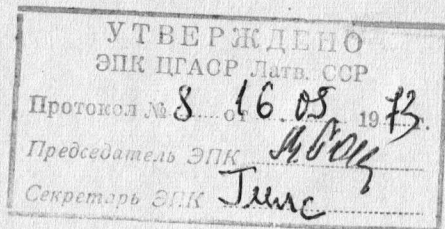 УТВЕРЖДЕНО
ЭПК ЦГАОР Латв. ССР
Протокол № 8 от 16.05 1973 г.
Председатель ЭПК
Секретарь ЭПК